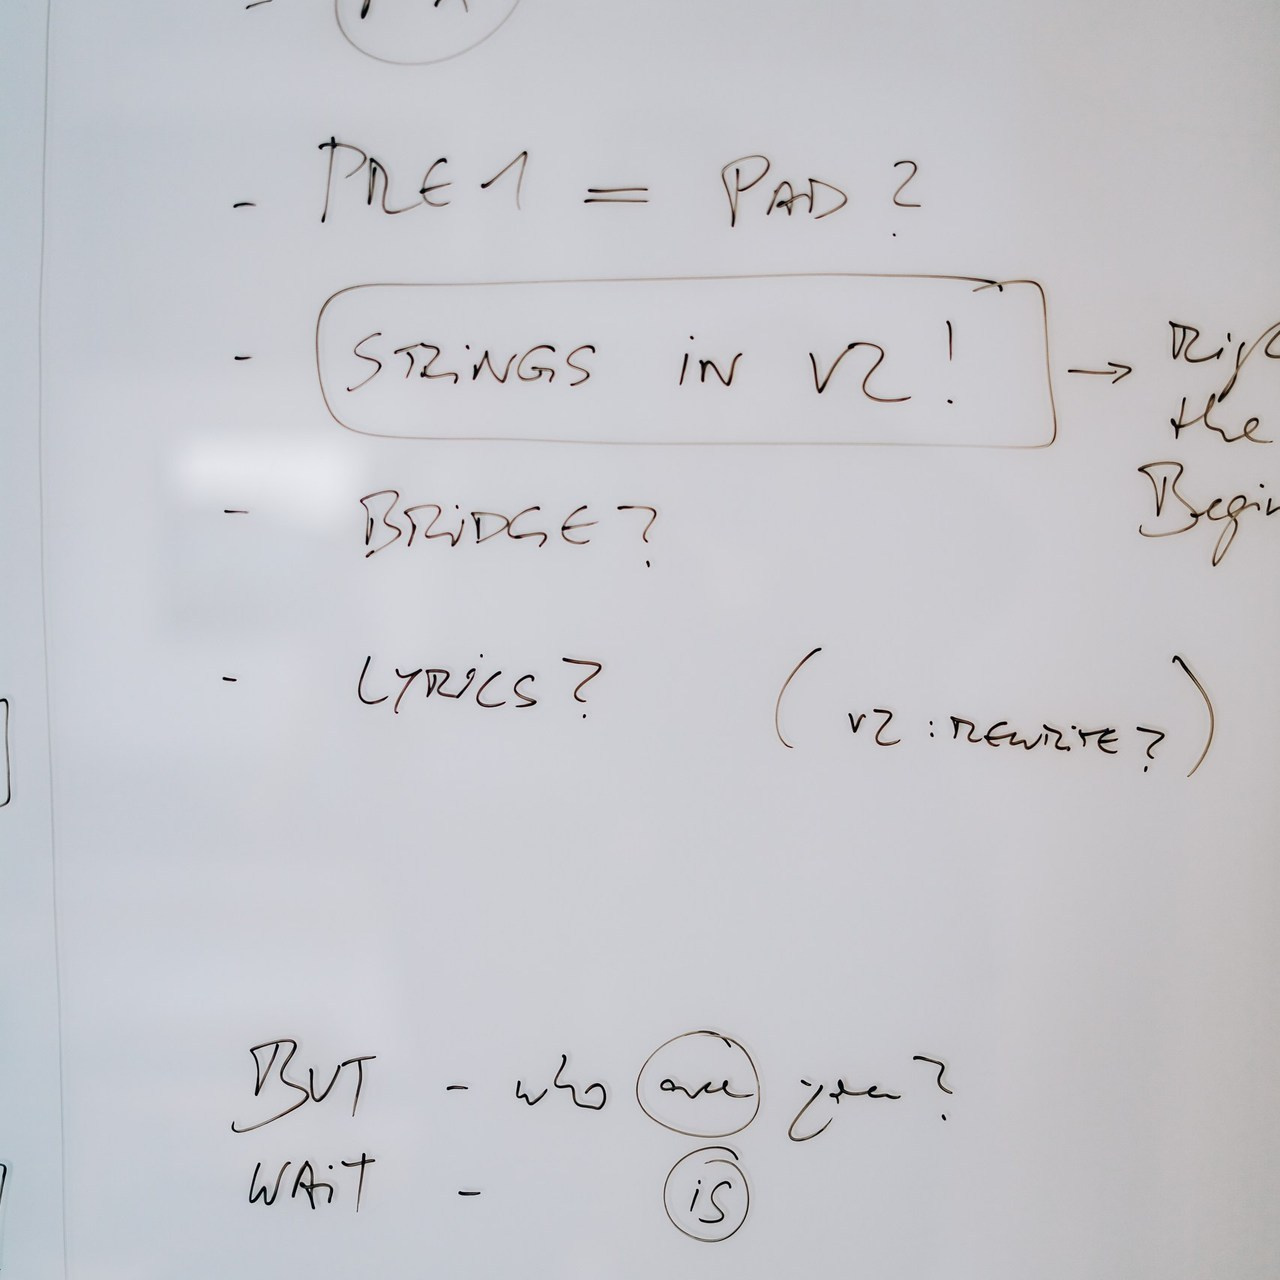 - PRE 1 = PAD ?
- STRINGS IN V2 ! →
the
- BRIDGE ?
- LYRICS ? ( V2 : REWRITE ? )
BUT - who are you ?
WAIT - is